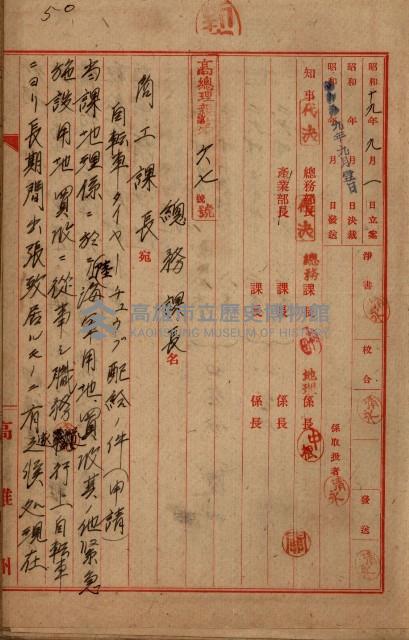 50
昭和十九年九月一日立案
昭和 年 月 日決裁
昭和 九年九月壹日發送
淨書
校合
發送
知事代決
總務部長代決
產業部長
總務課長
課長
課長
課長
地理係長
係長
係長
係取扱者
高總理 第六七號
總務課長名
商工課長宛
自転車タイヤーチューブ配給ノ件(申請)
当課地理係ニ於テハ陸海軍用地買收其ノ他緊急
施設用地買收ニ從事シ職務遂行上自転車
ニヨリ長期間出張致居ルモノニ有之候処現在
高雄州
高雄市立歷史博物館
KAOHSIUNG MUSEUM OF HISTORY